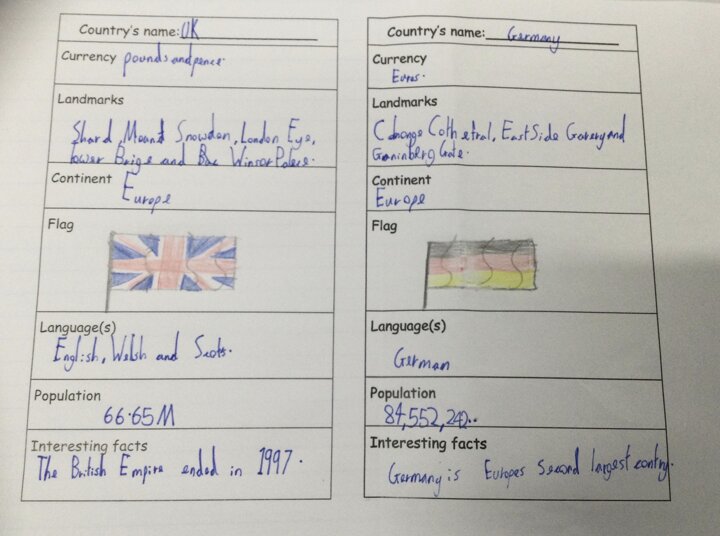 Country's name: UK
Currency pounds and pence.
Landmarks
Shard, Mount Snowdon, London Eye,
tower Brige and Winsor Palace.
Continent
Europe
Flag
Language(s)
English, Welsh and Scots.
Population
66.65M
Interesting facts
The British Empire ended in 1997.
Country's name: Germany
Currency
Euros.
Landmarks
Cathetral, East Side Garery and
Gate.
Continent
Europe
Flag
Language(s)
German
Population
84,552,242..
Interesting facts
Germany is Europes Second largest contry.